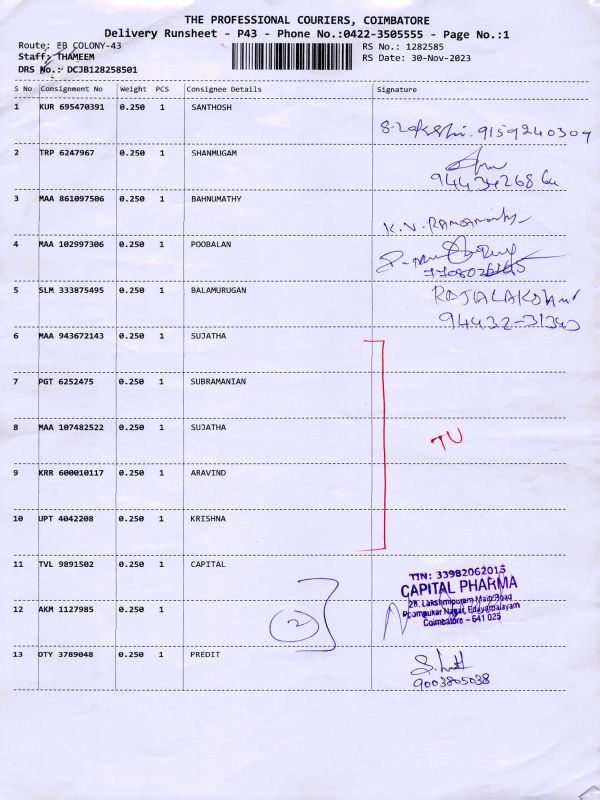 THE PROFESSIONAL COURIERS, COIMBATORE
Delivery Runsheet - P43 - Phone No.:0422-3505555 - Page No.:1
Route: EB COLONY-43 RS No.: 1282585
Staff: THAMEEM RS Date: 30-Nov-2023
DRS No.: DCJB128258501
S No Consignment No Weight PCS Consignee Details Signature
1 KUR 695470391 0.250 1 SANTHOSH
9159240309
2 TRP 6247967 0.250 1 SHANMUGAM
3 MAA 861097506 0.250 1 BAHNUMATHY
K.V.
4 MAA 102997306 0.250 1 POOBALAN
5 SLM 333875495 0.250 1 BALAMURUGAN
94432-31340
6 MAA 943672143 0.250 1 SUJATHA
7 PGT 6252475 0.250 1 SUBRAMANIAN
8 MAA 107482522 0.250 1 SUJATHA
TU
9 KRR 600010117 0.250 1 ARAVIND
10 UPT 4042208 0.250 1 KRISHNA
11 TVL 9891502 0.250 1 CAPITAL
TIN: 33982062015
CAPITAL PHARMA
28, Lakshmipuram Main Road
Nagar, Edayarpalayam
Coimbatore - 641 025
12 AKM 1127985 0.250 1
2
13 OTY 3789048 0.250 1 PREDIT
9003805038